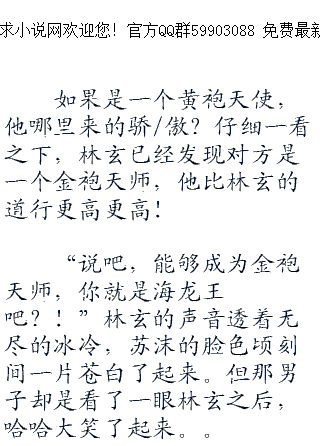 求小说网欢迎您！官方QQ群59903088 免费最新
如果是一个黄袍天使，
他哪里来的骄/傲？仔细一看
之下，林玄已经发现对方是
一个金袍天师，他比林玄的
道行更高更高！
“说吧，能够成为金袍
天师，你就是海龙王
吧？！”林玄的声音透着无
尽的冰冷，苏沫的脸色顷刻
间一片苍白了起来。但那男
子却是看了一眼林玄之后，
哈哈大笑了起来。。